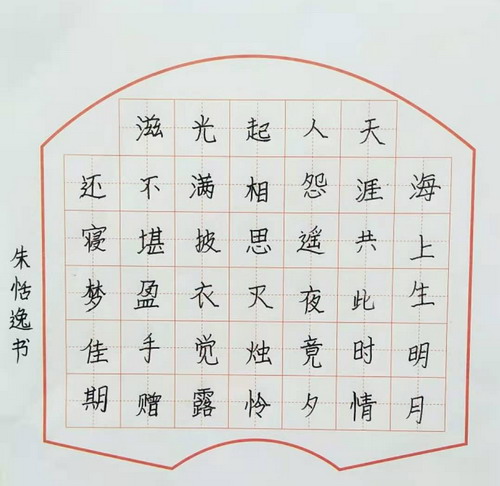 海上生明月
天涯共此时情
人怨遥夜竟夕
起相思灭烛怜
光满披衣觉露
滋不堪盈手赠
还寝梦佳期
朱恬逸书